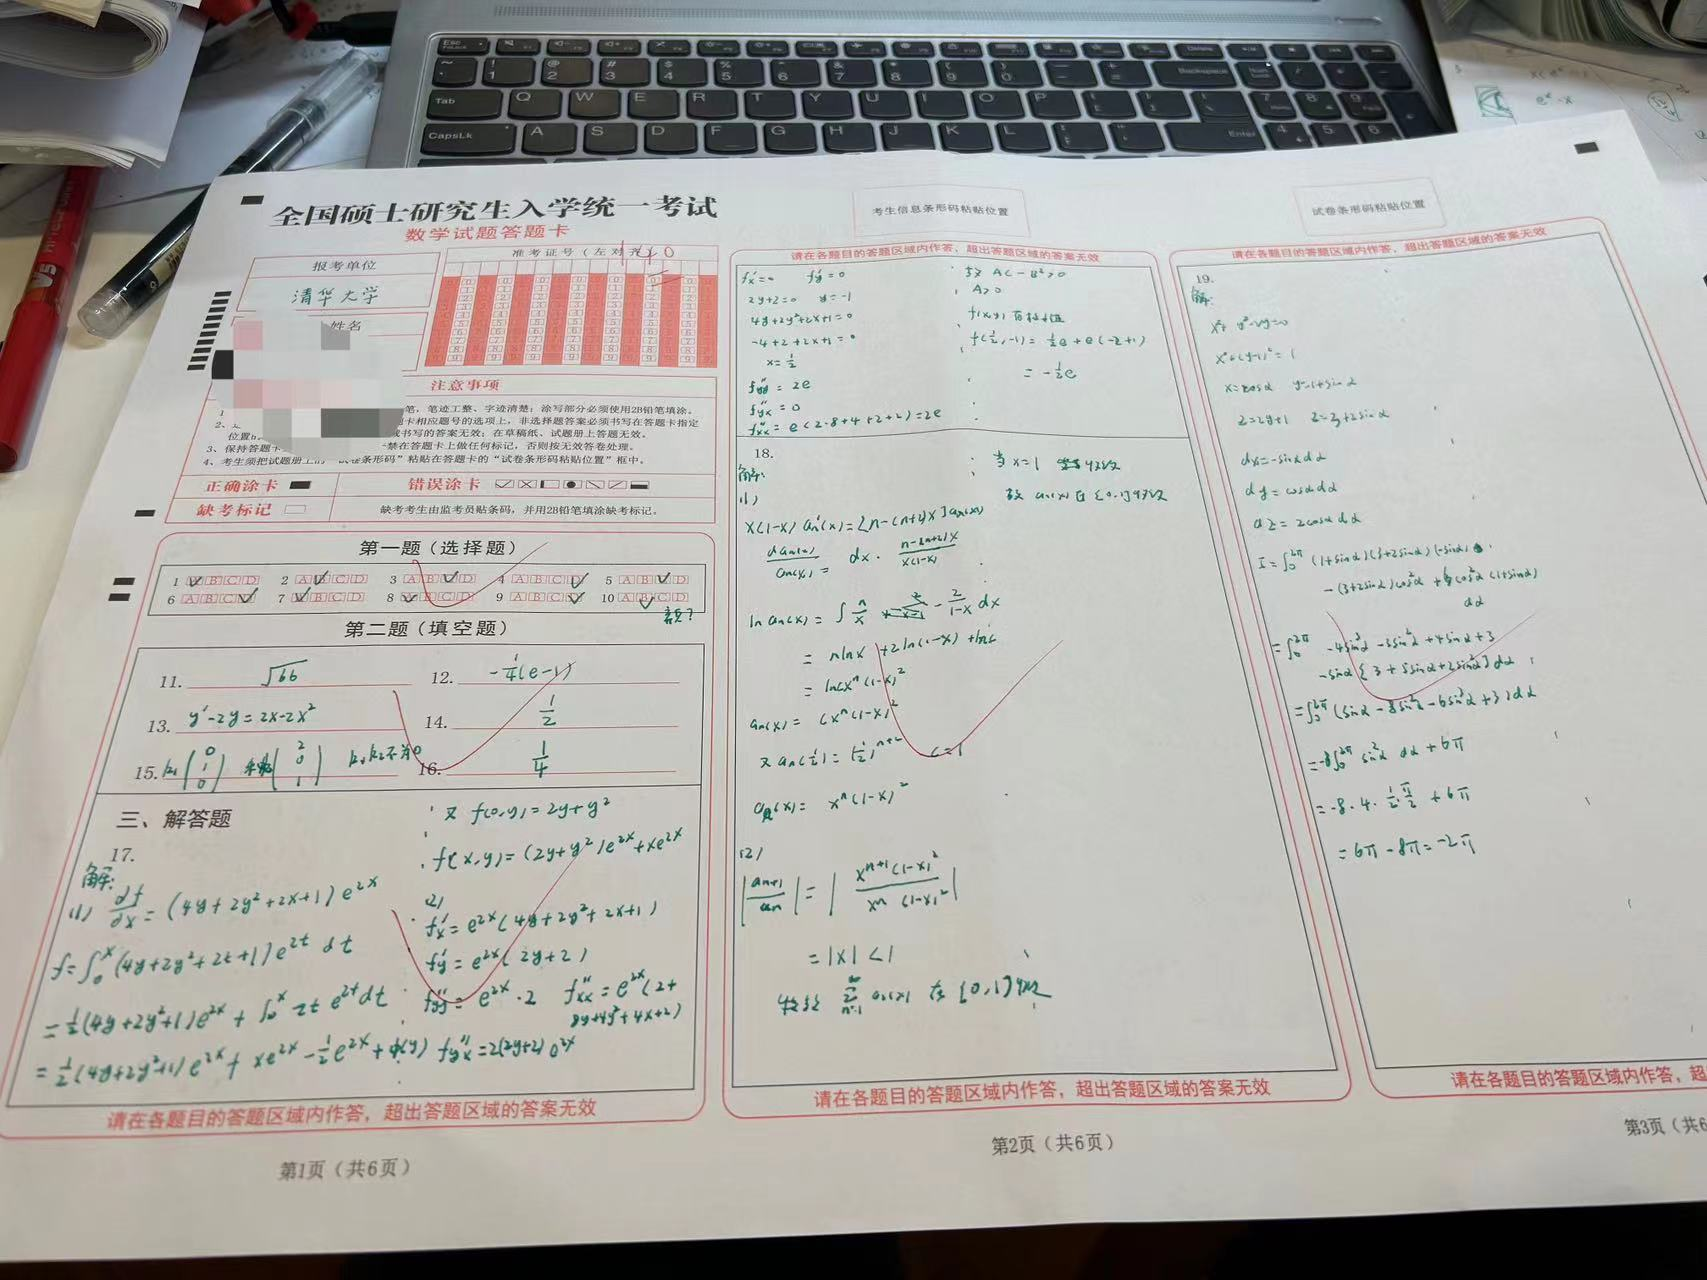 全国硕士研究生入学统一考试
数学试题答题卡
报考单位
清华大学
姓名
准考证号(左对齐)
140
注意事项
笔，笔迹工整、字迹清楚；涂写部分必须使用2B铅笔填涂。
题卡相应题号的选项上，非选择题答案必须书写在答题卡指定
书写的答案无效；在草稿纸、试题册上答题无效。
禁在答题卡上做任何标记，否则按无效答卷处理。
4、考生须把试题册上的“试卷条形码”粘贴在答题卡的“试卷条形码粘贴位置”框中。
正确涂卡
错误涂卡
缺考标记
缺考考生由监考员贴条码，并用2B铅笔填涂缺考标记。
第一题(选择题)
1 A B C D 2 A B C D 3 A B C D 4 A B C D 5 A B C D
6 A B C D 7 A B C D 8 A B C D 9 A B C D 10 A B C D
第二题(填空题)
11. √66
12. -1/4(e-1)
13. y'-2y=2x-2x²
14. 1/2
15. k₁(0 1 0) (2 0 1) k₁k₂不为0
16. 1/4
三、解答题
17.
解:
(1) df/dx = (4y+2y²+2x+1)e^2x
f=∫₀ˣ(4y+2y²+2t+1)e^2t dt
=1/2(4y+2y²+1)e^2x + ∫₀ˣ 2t e^2t dt
=1/2(4y+2y²+1)e^2x + xe^2x - 1/2e^2x + φ(y)
又 f(0,y)=2y+y²
f(x,y)=(2y+y²)e^2x+xe^2x
(2)
f'x=e^2x(4y+2y²+2x+1)
f'y=e^2x(2y+2)
f''yy=e^2x·2 f''xx=e^2x(2+
8y+4y²+4x+2)
f''yx=2(2y+2)e^2x
请在各题目的答题区域内作答，超出答题区域的答案无效
第1页(共6页)
考生信息条形码粘贴位置
请在各题目的答题区域内作答，超出答题区域的答案无效
f'x=0 f'y=0
2y+2=0 y=-1
4y+2y²+2x+1=0
-4+2+2x+1=0
x=1/2
f''yy=2e
f''yx=0
f''xx=e(2-8+4+2+2)=2e
故 AC-B²>0
A>0
f(x,y)有极小值
f(1/2,-1)=1/2e+e(-2+1)
=-1/2e
18.
解:
(1)
x(1-x)an'(x)=[n-(n+2)x]an(x)
dan(x)/an(x) = dx·n-(n+2)x/x(1-x)
ln an(x)=∫n/x - 2/1-x dx
=nlnx+2ln(1-x)+lnc
=lncxⁿ(1-x)²
an(x)=cxⁿ(1-x)²
又an(1/2)=(1/2)ⁿ⁺² c=1
an(x)=xⁿ(1-x)²
(2)
|an+1/an|=|xⁿ⁺¹(1-x)²/xⁿ(1-x)²|
=|x|<1
级数 ∞∑n=1 an(x) 在[0,1)收敛
当x=1 收敛
故 an(x)在[0,1]收敛
请在各题目的答题区域内作答，超出答题区域的答案无效
第2页(共6页)
试卷条形码粘贴位置
请在各题目的答题区域内作答，超出答题区域的答案无效
19.
解:
x²+y²-2y=0
x²+(y-1)²=1
x=cosα y=1+sinα
z=2y+1 z=3+2sinα
dx=-sinαdα
dy=cosαdα
dz=2cosαdα
I=∫₀^2π(1+sinα)(3+2sinα)(-sinα)
-(3+2sinα)cos²α+cos²α(1+sinα)
dα
=∫₀^2π -4sin³α-5sin²α+4sinα+3
-sinα[3+5sinα+2sin²α]dα
=∫₀^2π(sinα-8sin²α-6sin³α+3)dα
=-8∫₀^2π sin²α dα+6π
=-8·4·1/2·π/2+6π
=6π-8π=-2π
请在各题目的答题区域内作答，超
第3页(共6
Esc
Tab Q W E R T Y U I O P
CapsLk A S D F G H J K L Enter
Backspace